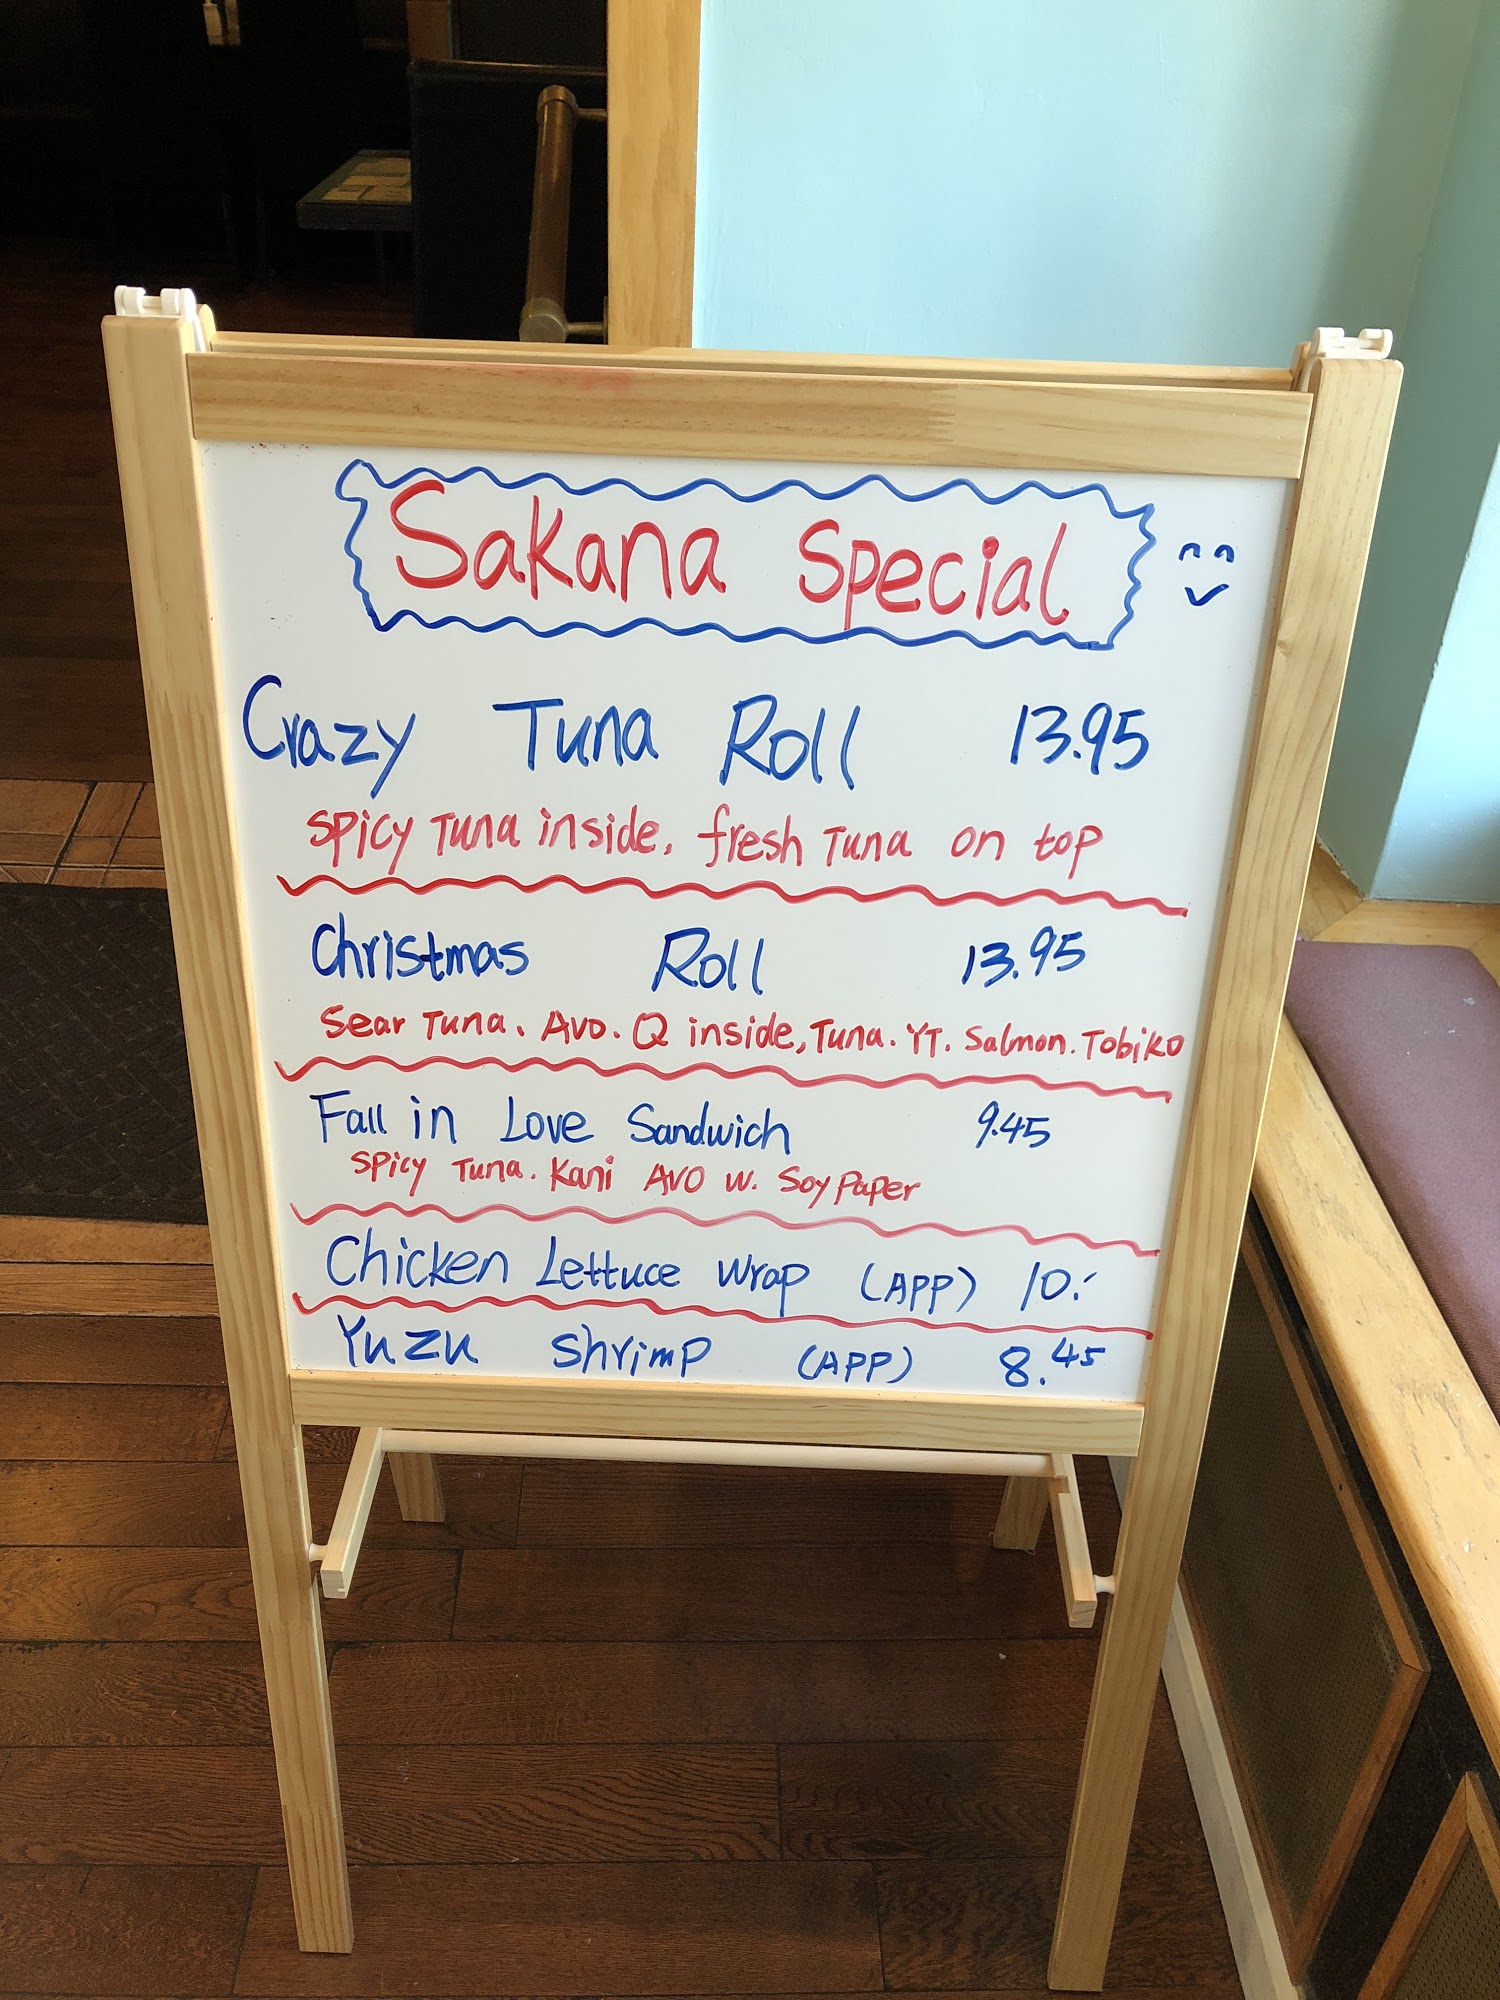 Sakana Special
Crazy Tuna Roll 13.95
Spicy Tuna inside, fresh Tuna on top
Christmas Roll 13.95
Sear Tuna. Avo. Q inside, Tuna. YT. Salmon. Tobiko
Fall in Love Sandwich 9.45
Spicy Tuna. Kani Avo w. Soy Paper
Chicken Lettuce wrap (APP) 10.-
Yuzu Shrimp (APP) 8.45